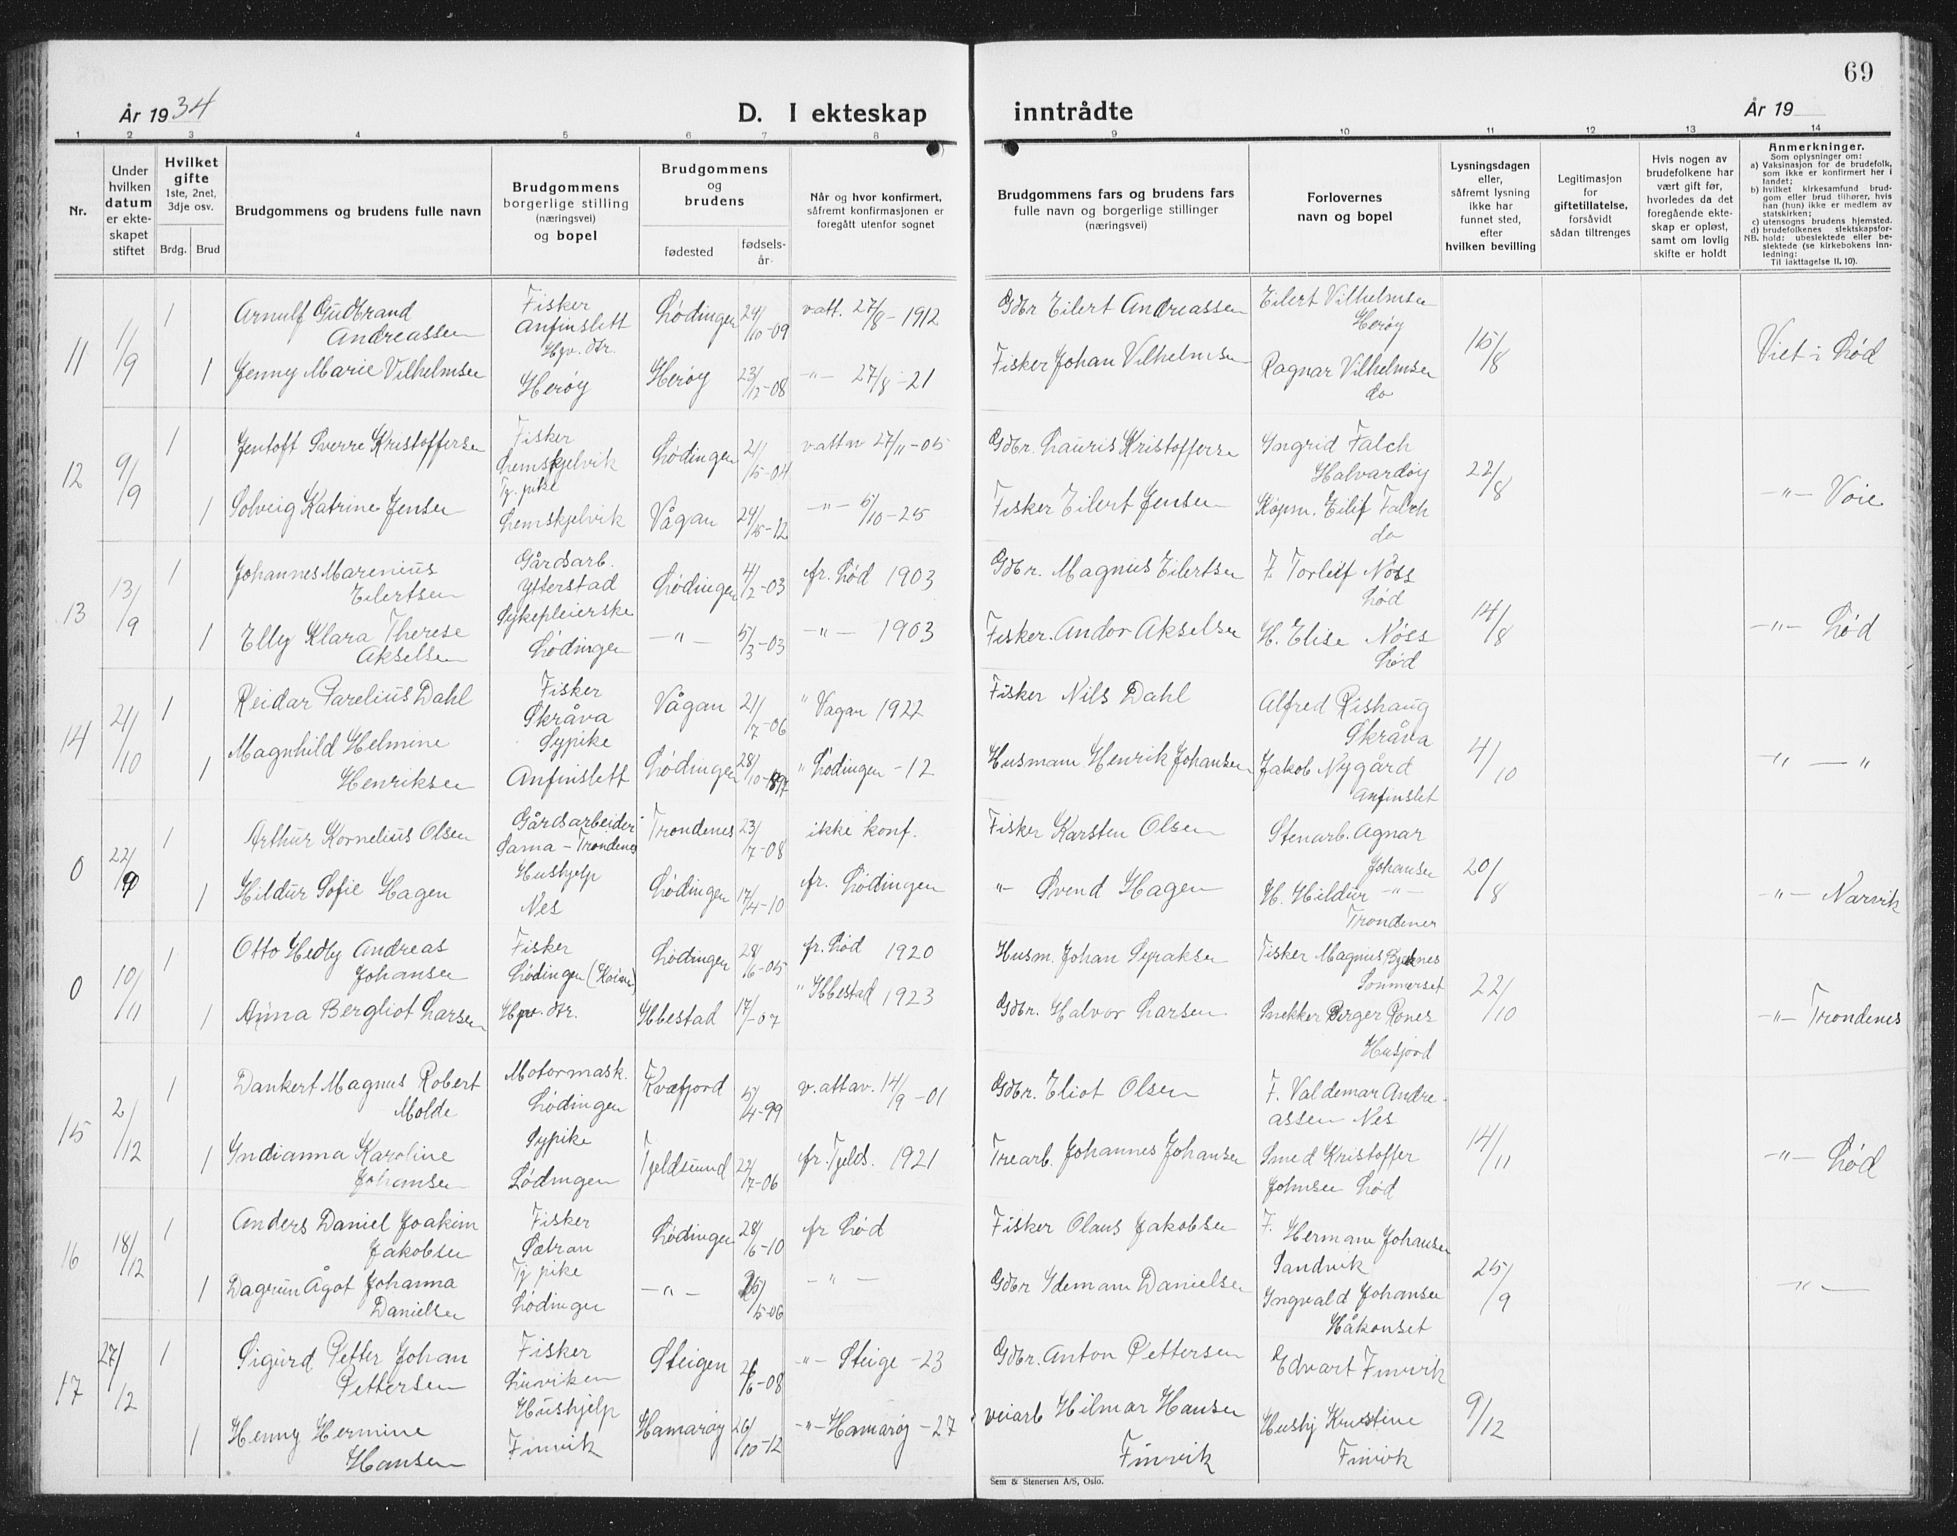 År 1934
D. I ekteskap
inntrådte
År 19
69
1 2 3 4 5 6 7 8 9 10 11 12 13 14
Nr.
Under hvilken datum er ekteskapet stiftet
Hvilket gifte 1ste, 2net, 3dje osv.
Brdg. Brud
Brudgommens og brudens fulle navn
Brudgommens borgerlige stilling (næringsvei) og bopel
Brudgommens og brudens
fødested
fødselsår
Når og hvor konfirmert, såfremt konfirmasjonen er foregått utenfor sognet
Brudgommens fars og brudens fars fulle navn og borgerlige stillinger (næringsvei)
Forlovernes navn og bopel
Lysningsdagen eller, såfremt lysning ikke har funnet sted, efter hvilken bevilling
Legitimasjon for giftetillatelse, forsåvidt sådan tiltrenges
Hvis nogen av brudefolkene har vært gift før, hvorledes da det foregående ekteskap er opløst, samt om lovlig skifte er holdt
Anmerkninger.
Som oplysninger om:
a) Vaksinasjon for de brudefolk, som ikke er konfirmert her i landet;
b) hvilket kirkesamfund brudgom eller brud tilhører, hvis han (hun) ikke er medlem av statskirken;
c) utensogns brudens hjemsted.
d) brudefolkenes slektskapsforhold: ubeslektede eller beslektede (se kirkebokens innledning:
NB.
Til iakttagelse II. 10).
11 1/9 1 Arnulf Gudbrand Andreassen Fisker Anfinslett Lødingen 24/10-09 vatt. 27/8-1912 Gdbr Eilert Andreassen Eilert Vilhelmsen Herøy 15/8 Viet i Lød
1 Jenny Marie Vilhelmsen Hgv. dtr. Herøy Herøy 23/12-08 -"- 27/8-21 Fisker Johan Vilhelmsen Ragnar Vilhelmsen do
12 9/9 1 Jentoft Sverre Kristoffersen Fisker Lemskjelvik Lødingen 21/5-04 vattn 27/11-05 Gdbr. Lauris Kristoffersen Yngrid Falch Halvardøy 22/8 -"- Voie
1 Solveig Katrine Jensen Tj. pike Lemskjelvik Vågan 24/5-12 -"- 5/10-25 Fisker Eilert Jensen Kjøpm. Eilif Falch do
13 13/9 1 Johannes Marenius Eilertsen Gårdsarb. Ytterstad Lødingen 4/2-03 fr. Lød 1903 Gdbr. Magnus Eilertsen F. Torleif Nöss Lød 14/8 -"- Lød
1 Elly Klara Therese Akselsen Sykepleierske Lødingen -"- 5/3-03 -"- 1903 Fisker. Andor Akselsen H. Elise Nöss Lød
14 21/10 1 Reidar Parelius Dahl Fisker Skråva Vågan 21/7-06 " Vagan 1922 Fisker Nils Dahl Alfred Rishaug Skråva 4/10 -"- -"
1 Magnhild Helmine Henriksen Sypike Anfinslett Lødingen 28/10-1897 " Lödingen -12 Husmann Henrik Johansen Jakob Nygård Anfinslet
0 22/9 1 Arthur Kornelius Olsen Gårdsarbeider Sama - Trondenes Trondenes 23/7-08 ikke konf. Fisker Karsten Olsen Stenarb. Agnar Johansen 20/8 -"- Narvik
1 Hildur Sofie Hagen Hushjelp Nes Lødingen 17/4-10 fr. Lødingen "- Svend Hagen H. Hildur -"- Trondenes
0 10/11 1 Otto Hedly Andreas Johansen Fisker Lødingen Lødingen 28/6-05 fr. Lød 1920 Husm. Johan Syraksen Fisker Magnus Sommerset 22/10 -"- Trondenes
1 Anna Bergliot Larsen Hgv. dtr. Ibbestad 17/-07 " Ibbestad 1923 Gdbr. Halvor Larsen Snekker Birger Rones Husjord
15 2/12 1 Dankert Magnus Robert Molde Motormask. Lødingen Kvæfjord 5/4-99 v. attav. 14/9-01 Gdbr. Eliot Olsen F. Valdemar Andreassen Nes 14/11 -"- Lød
1 Indianna Karoline Johansen Sypike Lödingen Tjeldsund 22/7-06 fr. Tjelds. 1921 Trearb. Johannes Johansen Smed Kristoffer Johnsen Lød
16 18/12 1 Anders Daniel Joakim Jakobsen Fisker Sætran Lødingen 28/6-10 fr Lød Fisker Olaus Jakobsen F. Hermann Johansen Sandvik 25/9 -"-
1 Dagrun Ågot Johanna Danielsen Tj pike Lødingen -"- /5-06 -"- Gdbr Idemann Danielsen Yngvald Johansen Håkonset
17 27/12 1 Sigurd Petter Johan Pettersen Fisker Linviken Steigen 26/6-08 -"- Steige -23 Gdbr. Anton Pettersen Edvart Finvik 9/12
1 Henny Hermine Hansen Hushjelp Finvik Hamarøy 26/10-12 -"- Hamarøy -27 veiarb Hilmar Hansen Finvik Hushj Kristine Finvik
Sem & Stenersen A/S, Oslo.